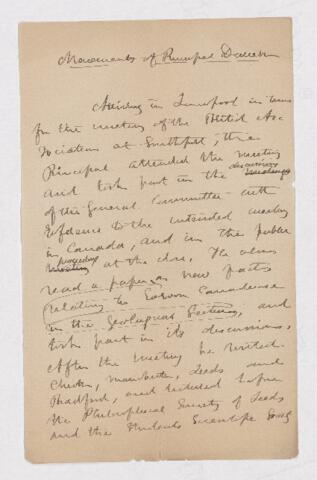 Movements of Principal Dawson
Arriving in Liverpool in time
for the meeting of the British Ass
ociation at Southport, the
Principal attended the meeting
and took part in the discussions
of the General Committee with
reference to the intended meeting
in Canada, and in the public
proceedings at the close. He also
read a paper on new facts
relating to Eozoon Canadense
in the Geological Section, and
took part in its discussions.
After the meeting he visited
Chester, Manchester, Leeds and
Bradford, and lectured before
the Philosophical Society of Leeds
and the Students Scientific Society